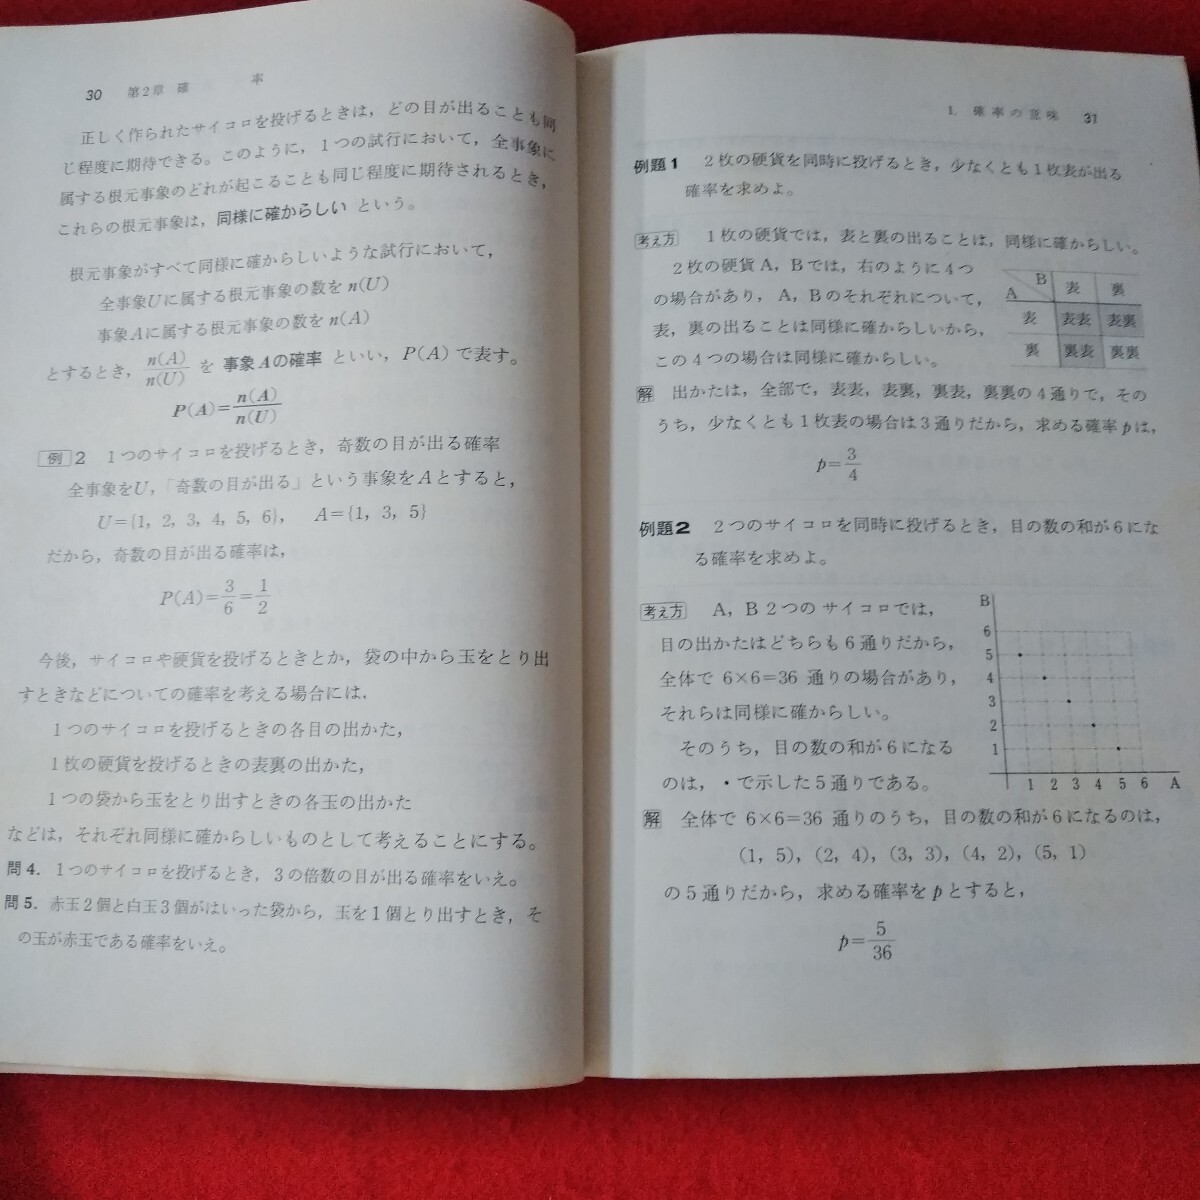 30 第2章 確 率
正しく作られたサイコロを投げるときは，どの目が出ることも同
じ程度に期待できる。このように，1つの試行において，全事象に
属する根元事象のどれが起こることも同じ程度に期待されるとき，
これらの根元事象は，同様に確からしい という。
根元事象がすべて同様に確からしいような試行において，
全事象Uに属する根元事象の数を n(U)
事象Aに属する根元事象の数を n(A)
とするとき，n(A)/n(U) を 事象Aの確率 といい，P(A) で表す。
P(A)=n(A)/n(U)
例 2 1つのサイコロを投げるとき，奇数の目が出る確率
全事象をU，「奇数の目が出る」という事象をAとすると，
U={1, 2, 3, 4, 5, 6}， A={1, 3, 5}
だから，奇数の目が出る確率は，
P(A)=3/6=1/2
今後，サイコロや硬貨を投げるときとか，袋の中から玉をとり出
すときなどについての確率を考える場合には，
1つのサイコロを投げるときの各目の出かた，
1枚の硬貨を投げるときの表裏の出かた，
1つの袋から玉をとり出すときの各玉の出かた
などは，それぞれ同様に確からしいものとして考えることにする。
問4. 1つのサイコロを投げるとき，3の倍数の目が出る確率をいえ。
問5. 赤玉2個と白玉3個がはいった袋から，玉を1個とり出すとき，そ
の玉が赤玉である確率をいえ。
1. 確率の意味 31
例題1 2枚の硬貨を同時に投げるとき，少なくとも1枚表が出る
確率を求めよ。
考え方 1枚の硬貨では，表と裏の出ることは，同様に確からしい。
2枚の硬貨A，Bでは，右のように4つ
の場合があり，A，Bのそれぞれについて，
表，裏の出ることは同様に確からしいから，
この4つの場合は同様に確からしい。
A B 表 裏
表 表表 表裏
裏 裏表 裏裏
解 出かたは，全部で，表表，表裏，裏表，裏裏の4通りで，その
うち，少なくとも1枚表の場合は3通りだから，求める確率pは，
p=3/4
例題2 2つのサイコロを同時に投げるとき，目の数の和が6にな
る確率を求めよ。
考え方 A，B 2つのサイコロでは，
目の出かたはどちらも6通りだから，
全体で 6×6=36 通りの場合があり，
それらは同様に確からしい。
そのうち，目の数の和が6になる
のは，・で示した5通りである。
B
6
5
4
3
2
1
1 2 3 4 5 6 A
解 全体で 6×6=36 通りのうち，目の数の和が6になるのは，
(1, 5), (2, 4), (3, 3), (4, 2), (5, 1)
の5通りだから，求める確率をpとすると，
p=5/36